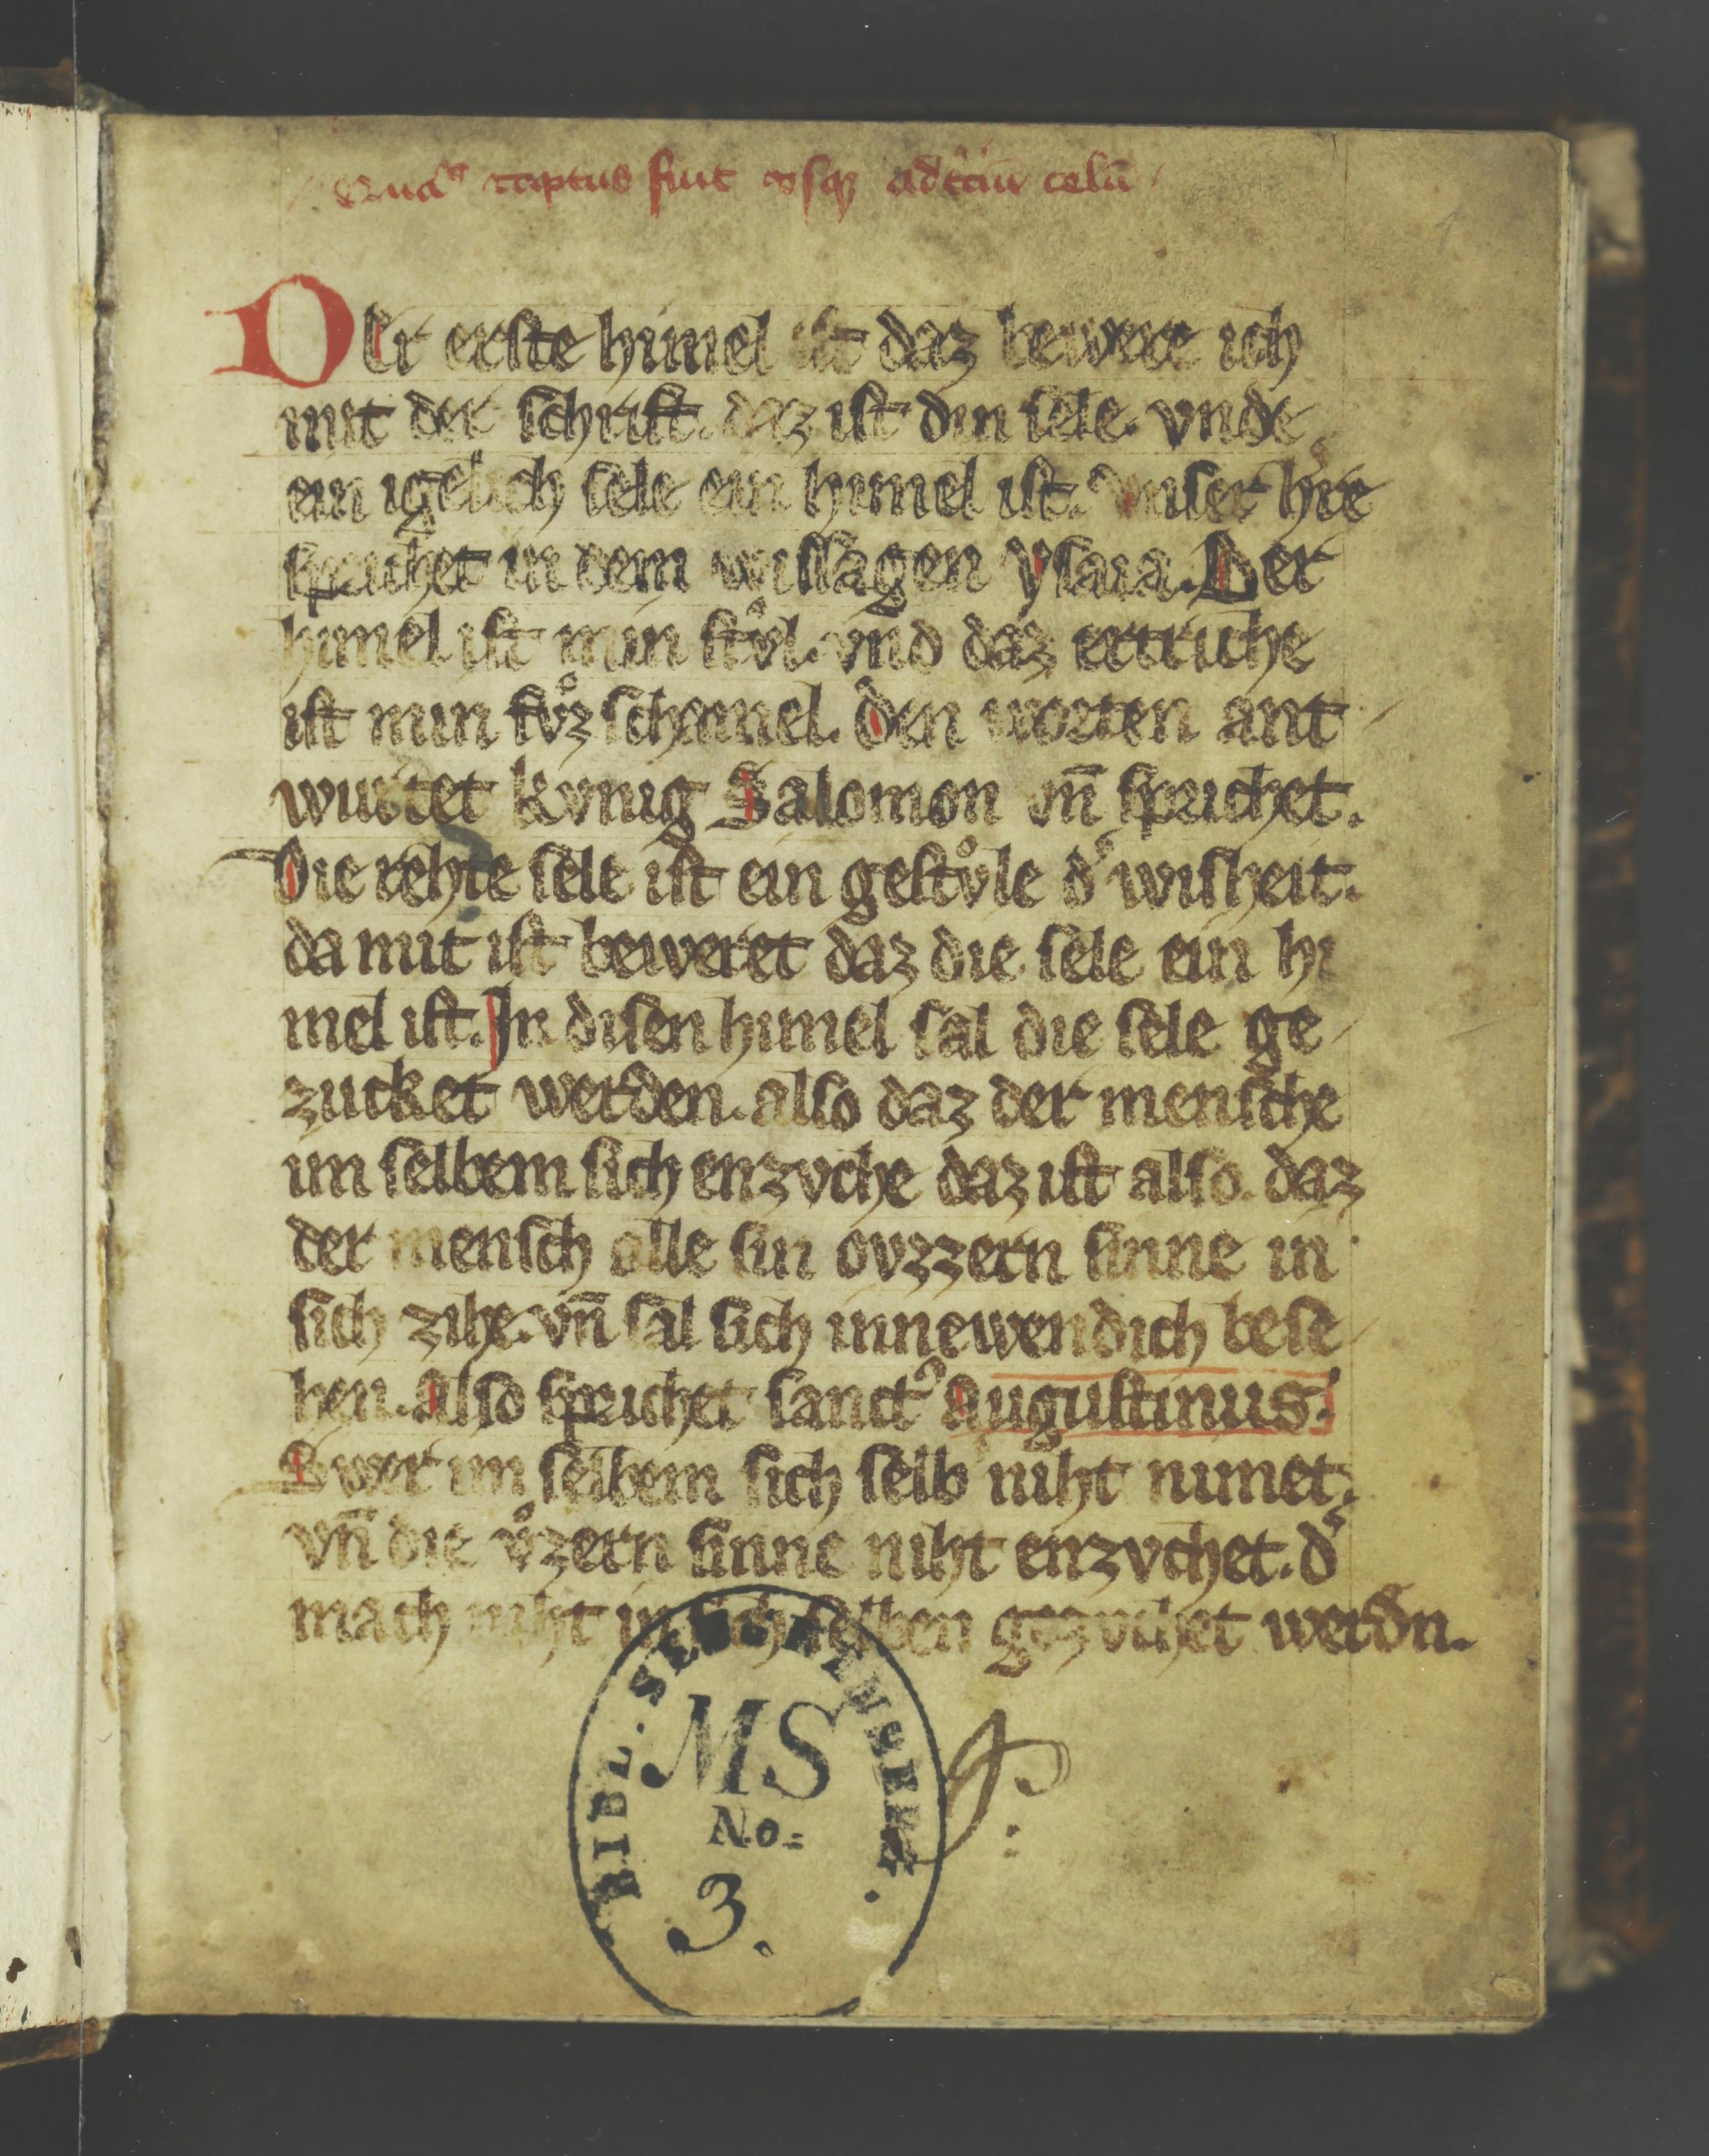 raptus fuit vsqꝫ ad tciu celū
DEr erste himel ist daz bewere ich
mit der schrift. daz ist din sele. vnde
ein igelich sele ein himel ist. vnser hre
sprichet in dem wissagen ysaia. Der
himel ist min stvͦl. vnd daz ertriche
ist min fvͦzschemel. Den worten ant
wurtet kvnig Salomon vn̄ sprichet.
Die rehte sele ist ein gestvͦle d' wisheit.
da mit ist beweret daz die sele ein hi
mel ist. Jn disen himel sal die sele ge
zucket werden. also daz der mensche
im selbem sich enzvche daz ist also. daz
der mensch alle sin ovzzern sinne in
sich zihe. vn̄ sal sich innewendich bese
hen. Also sprichet sanct' Augustinus.
Swer im selbem sich selb niht nimet.
vn̄ die vͦzern sinne niht enzvchet. d'
mach niht in sich selben gezvchet werdn.
BIBL.
MS
No.
3.